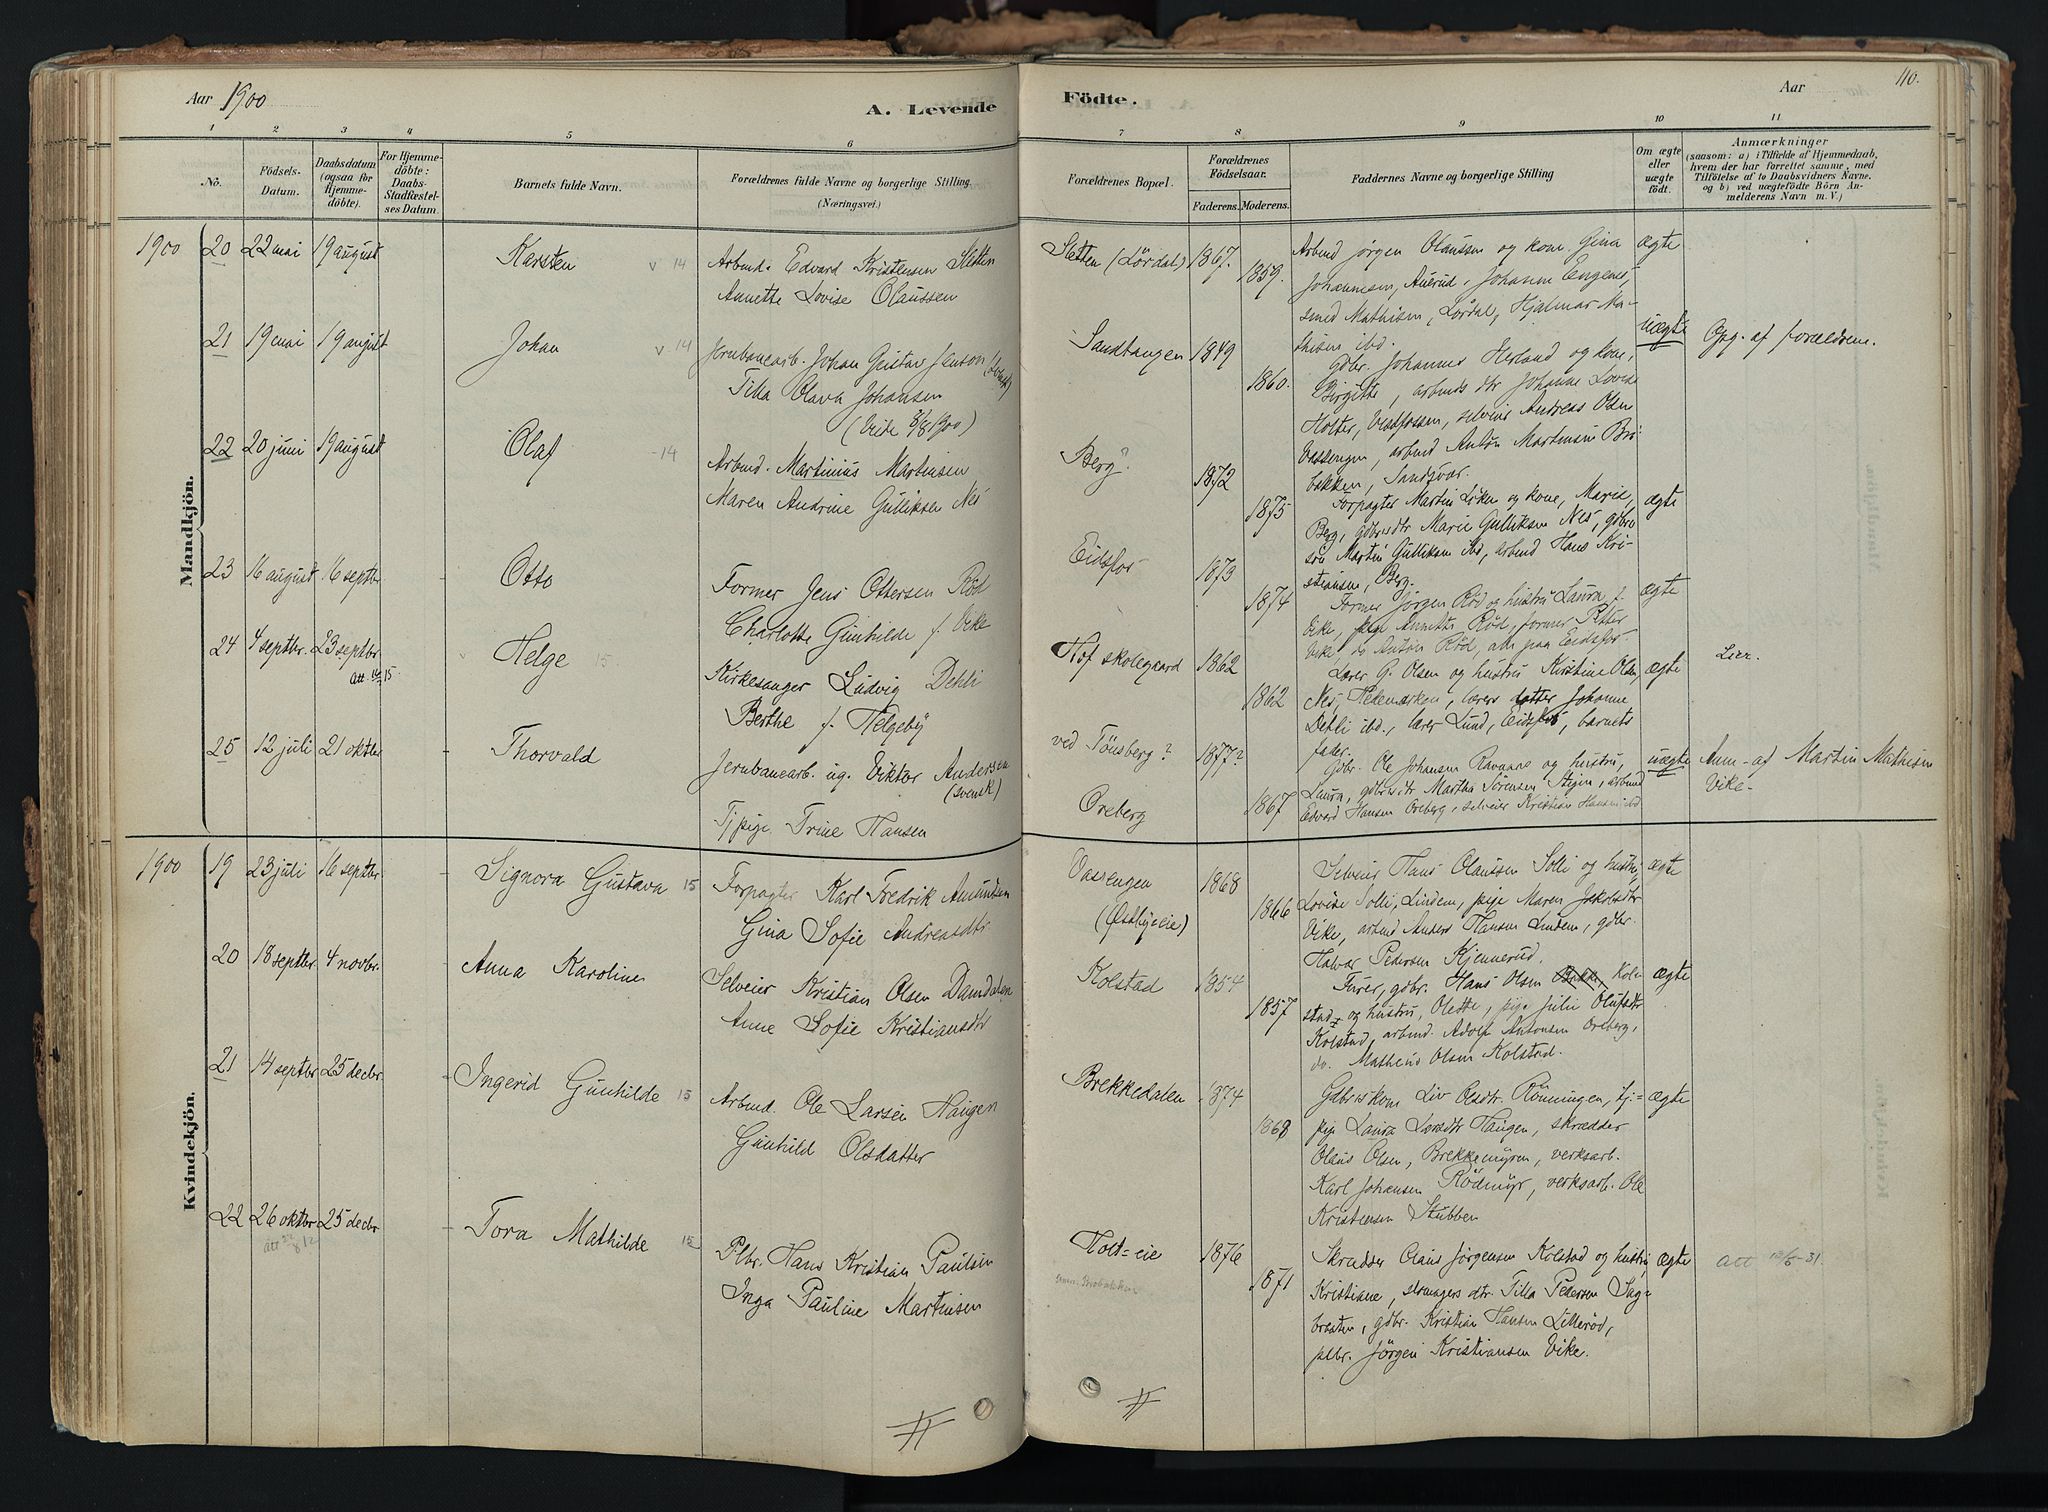 Aar 1900
A. Levende
Födte.
Aar
110.
1 2 3 4 5 6 7 8 9 10 11
No.
Födsels-
Datum.
Daabsdatum
(ogsaa for
Hjemme-
döbte).
For Hjemme-
döbte:
Daabs-
Stadfæstel-
ses Datum.
Barnets fulde Navn.
Forældrenes fulde Navne og borgerlige Stilling.
(Næringsvei.)
Forældrenes Bopæl.
Forældrenes
Födselsaar.
Faderens. Moderens.
Faddernes Navne og borgerlige Stilling
Om ægte
eller
uægte
födt.
Anmærkninger
(saasom: a) i Tilfælde af Hjemmedaab,
hvem der har forrettet samme, med
Tilföielse af to Daabsvidners Navne,
og b) ved uægtefödte Börn An-
melderens Navn m. V.)
Mandkjön.
1900 20 22 mai 19 august Karsten v 14
Arbmd. Edvard Kristensen Sletten
Annette Lovise Olaussen
Sletten (Lördal) 1867. 1859.
Arbmd Jörgen Olaussen og kone Gina
Johannesen, Auerud, Johanne Engene,
smed Mathisen, Lördal, Hjalmar Ma-
thisen ibd.
ægte
21 19 mai 19 august Johan v 14
Jernbanearb. Johan Gustav Jenson
Tilla Olava Johansen
(Vide 8/8 1900)
Sandtangen 1849 1860.
Gdbr. Johannes Hesland og kone,
Birgitte, arbmds dtr Johanne Lovise
Holter, Vestfossen, selveier Andreas Olsen
Vassengen, arbmd Anton Martinsen Bræ-
bakken, Sandsvær.
uægte
Opg. af forældrene.
22 20 juni 19 august Olaf - 14
Arbmd. Martinius Martinsen
Maren Andrine Gulliksen Nes
Berg? 1872 1875
Forpagter Martin Liken og kone, Marie,
Berg, gdbrsdtr Marie Gulliksen Nes, gdbrs
sön Martin Gulliksen ibd, arbmd Hans Kri-
stiansen, Berg.
ægte
23 16 august 16 septbr Otto
Former Jens Ottersen Röd
Charlotte Gunhilde f. Vike
Eidsfos 1873 1874
Former Jörgen Röd og hustru Laura, f.
Vike, pige Annette Röd, former Petter
Vike, og Anton Röd, alle paa Eidsfos.
ægte
24 4 septbr. 23 septbr Helge 15
Kirkesanger Ludvig Dehli
Berthe f. Helgeby
Hof skolegaard 1862 1862
Lærer G. Olsen og hustru Kirstine Olsen,
Nes, Hedemarken, lærers datter Johanne
Dehli ibd., lærer Lund, Eidsfos, barnets
fader.
ægte
Lier.
25 12 juli 21 oktbr - Thorvald
Jernbanearb. ug. Viktor Andersen
(svensk)
Tj.pige. Trine Hansen
ved Tönsberg? 1877?
Oreberg 1867
Gdbr. Ole Johansen Ravnaas og hustru,
Laura, gdbrsdtr Martha Sörensen Stejen, arbmd
Edvard Hansen Oreberg, selveier Kristian Hansen ibd
uægte
Anm. af Martin Mathisen
Vike-
Kvindekjön.
1900 19 23 juli 16 septbr Signora Gustava 15
Forpagter Karl Fredrik Amundsen
Gina Sofie Andreasdtr.
Vassengen
(Østbyeie)
1868 1866
Selveier Hans Olaussen Solli og hustru,
Lovise Solli, Lindem, pige Maren Jakobsdtr
Vike, arbmd Anders Hansen Lindem, gdbr.
Halvor Pedersen Kjennerud.
ægte
20 18 septbr. 4 novbr. - Anna Karoline
Selveier Kristian Olsen Damdalen
Anne Sofie Kristiansdtr
Kolstad 1854 1857
Furer, gdbr. Hans Olsen Kol-
stad og hustru, Olette, pige Julie Olufsdtr
Kolstad, arbmd. Adolf Antonsen Oreberg,
do. Mathias Olsen Kolstad.
ægte
21 14 septbr 25 decbr. - Ingerid Gunhilde 15
Arbmd. Ole Larsen Haugen
Gunhild Olsdatter
Brekkedalen 1874 1868
Gdbrskone Liv Olsdtr. Rönningen, tj.-
pige Laura Larsdtr Haugen, skrædder
Olaus Olsen, Brekkemyren, verksarb.
Karl Johansen Rödmyr, verksarb. Ole
Kristiansen Stubben
ægte
22 26 oktbr 25 decbr - Tora Mathilde 15
Plbr. Hans Kristian Paulsen
Inga Pauline Martinsen
Holt-eie 1876 1871
Skrædder Olaus Jörgensen Kolstad og hustru,
Kristiane, strmagers dtr. Tilla Pedersen Sag-
braaten, gdbr. Kristian Hansen Lilleröd,
plbr. Jörgen Kristiansen Vike.
ægte
Att 12/5-31.